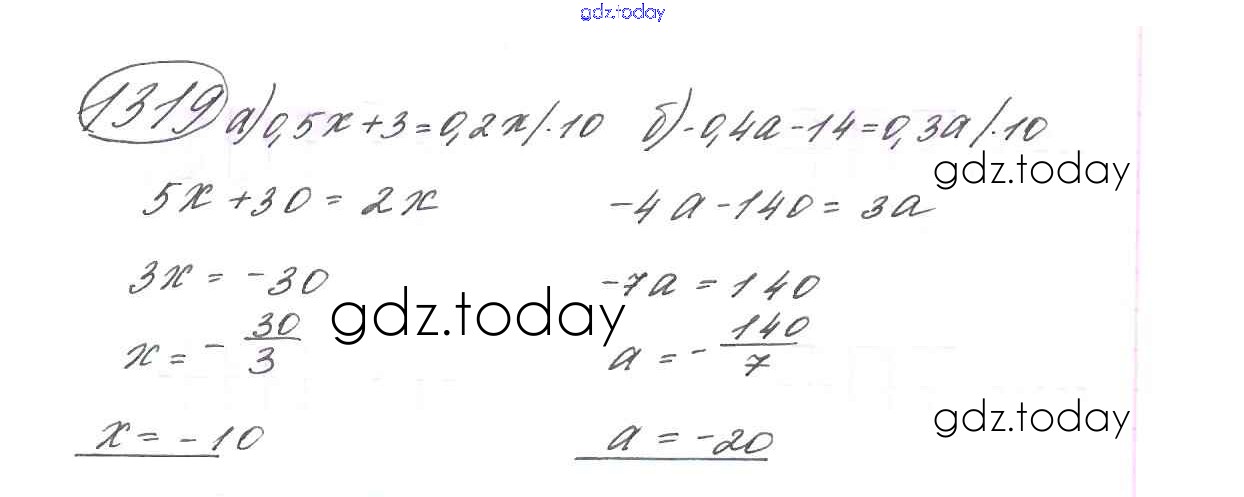 gdz.today
1319 а) 0,5x + 3 = 0,2x /·10 б) -0,4a - 14 = 0,3a /·10
gdz.today
5x + 30 = 2x -4a - 140 = 3a
3x = -30 -7a = 140
gdz.today
x = - 30/3 a = - 140/7
gdz.today
x = -10 a = -20